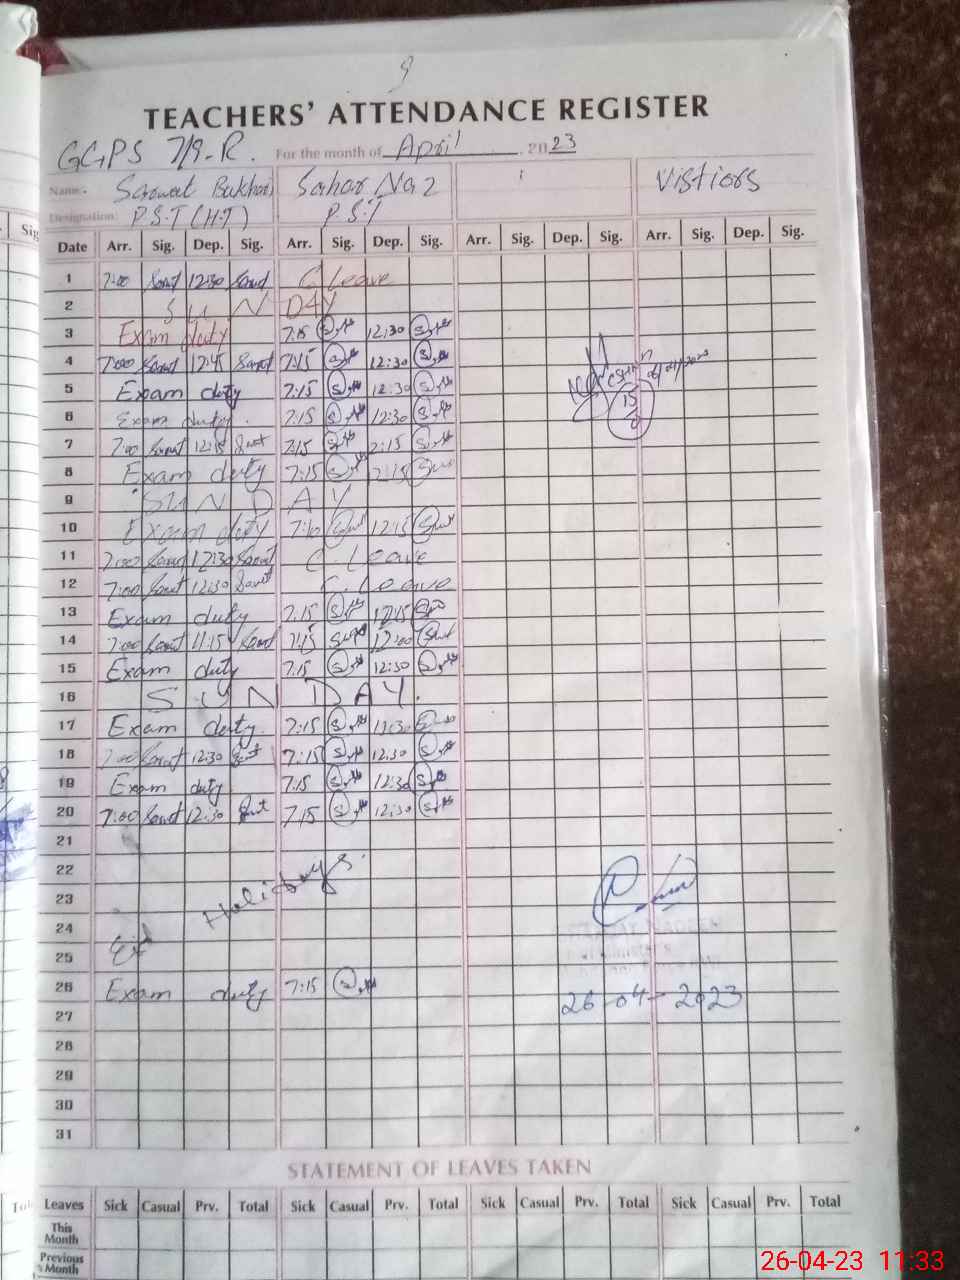 9
TEACHERS' ATTENDANCE REGISTER
GGPS 7/9-R. For the month of April, 2023
Name: Sarwat Bukhari Sahar Naz Vistiors
Designation: P.S.T (H.T) P.S.T
Date Arr. Sig. Dep. Sig. Arr. Sig. Dep. Sig. Arr. Sig. Dep. Sig. Arr. Sig. Dep. Sig.
1 7:00 Sarwat 12:30 Sarwat C Leave
2 S U N DAY
3 Exam duty 7:15 12:30
4 7:00 Sarwat 12:45 Sarwat 7:15 12:30
5 Exam duty 7:15 12:30
6 Exam duty. 7:15 12:30
7 7:00 Sarwat 12:15 7:15 12:15
8 Exam duty 7:15 12:15
9 SUN D A Y
10 Exam duty 7:10 12:15
11 7:00 Sarwat 12:30 Sarwat C. Leave
12 7:00 Sarwat 12:30 Sarwat C. Leave
13 Exam duty 7:15 12:15
14 7:00 Sarwat 11:15 Sarwat 7:15 12:00
15 Exam duty 7:15 12:30
16 S U N D A Y.
17 Exam duty. 7:15
18 7:00 Sarwat 12:30 7:15 12:30
19 Exam duty 7:15 12:30
20 7:00 Sarwat 12:30 7:15 12:30
21
22
23
24
25
Eid Holidays.
26 Exam duty 7:15
26-04-2023
27
28
29
30
31
STATEMENT OF LEAVES TAKEN
Leaves Sick Casual Prv. Total Sick Casual Prv. Total Sick Casual Prv. Total Sick Casual Prv. Total
This Month
Previous Month
26-04-23 11:33